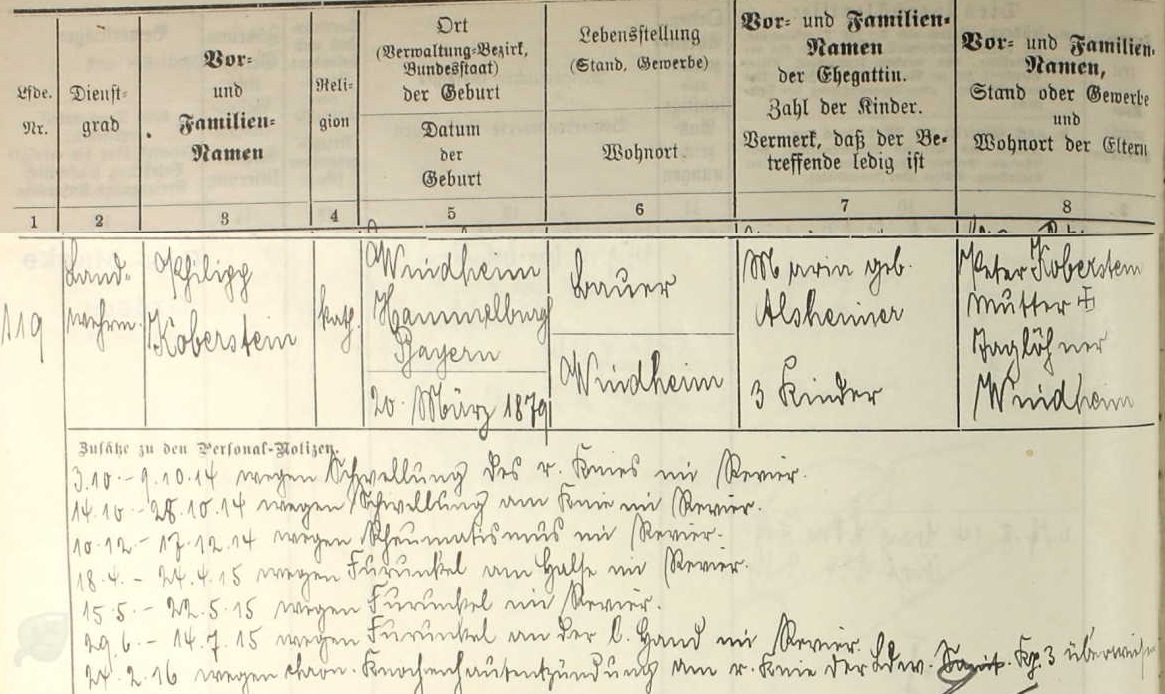 Lfde. Nr.
Dienst-
grad
Vor-
und
Familien-
Namen
Reli-
gion
Ort
(Verwaltung-Bezirk,
Bundesstaat)
der Geburt
Datum
der
Geburt
Lebensstellung
(Stand, Gewerbe)
Wohnort.
Vor- und Familien-
Namen
der Ehegattin.
Zahl der Kinder.
Vermerk, daß der Be-
treffende ledig ist
Vor- und Familien-
Namen,
Stand oder Gewerbe
und
Wohnort der Eltern
1 2 3 4 5 6 7 8
119
Land-
wehrm.
Philipp
Koberstein
kath.
Windheim
Hammelburg
Bayern
20. März 1879
Bauer
Windheim
Maria geb.
Alsheimer
3 Kinder
Peter Koberstein
Mutter ✠
Taglöhner
Windheim
Zusätze zu den Personal-Notizen.
3.10. - 9.10.14 wegen Schwellung des r. Knies im Revier.
14.10 - 28.10.14 wegen Schwellung am Knie im Revier.
10.12. - 17.12.14 wegen Rheumatismus im Revier.
18.4. - 24.4.15 wegen Furunkel am Halse im Revier.
15.5. - 22.5.15 wegen Furunkel im Revier.
29.6. - 14.7.15 wegen Furunkel an der l. Hand im Revier.
24.2.16 wegen chron. Knochenhautentzündung am r. Knie der Ldw. Sanit. Kp. 3 überwiesen